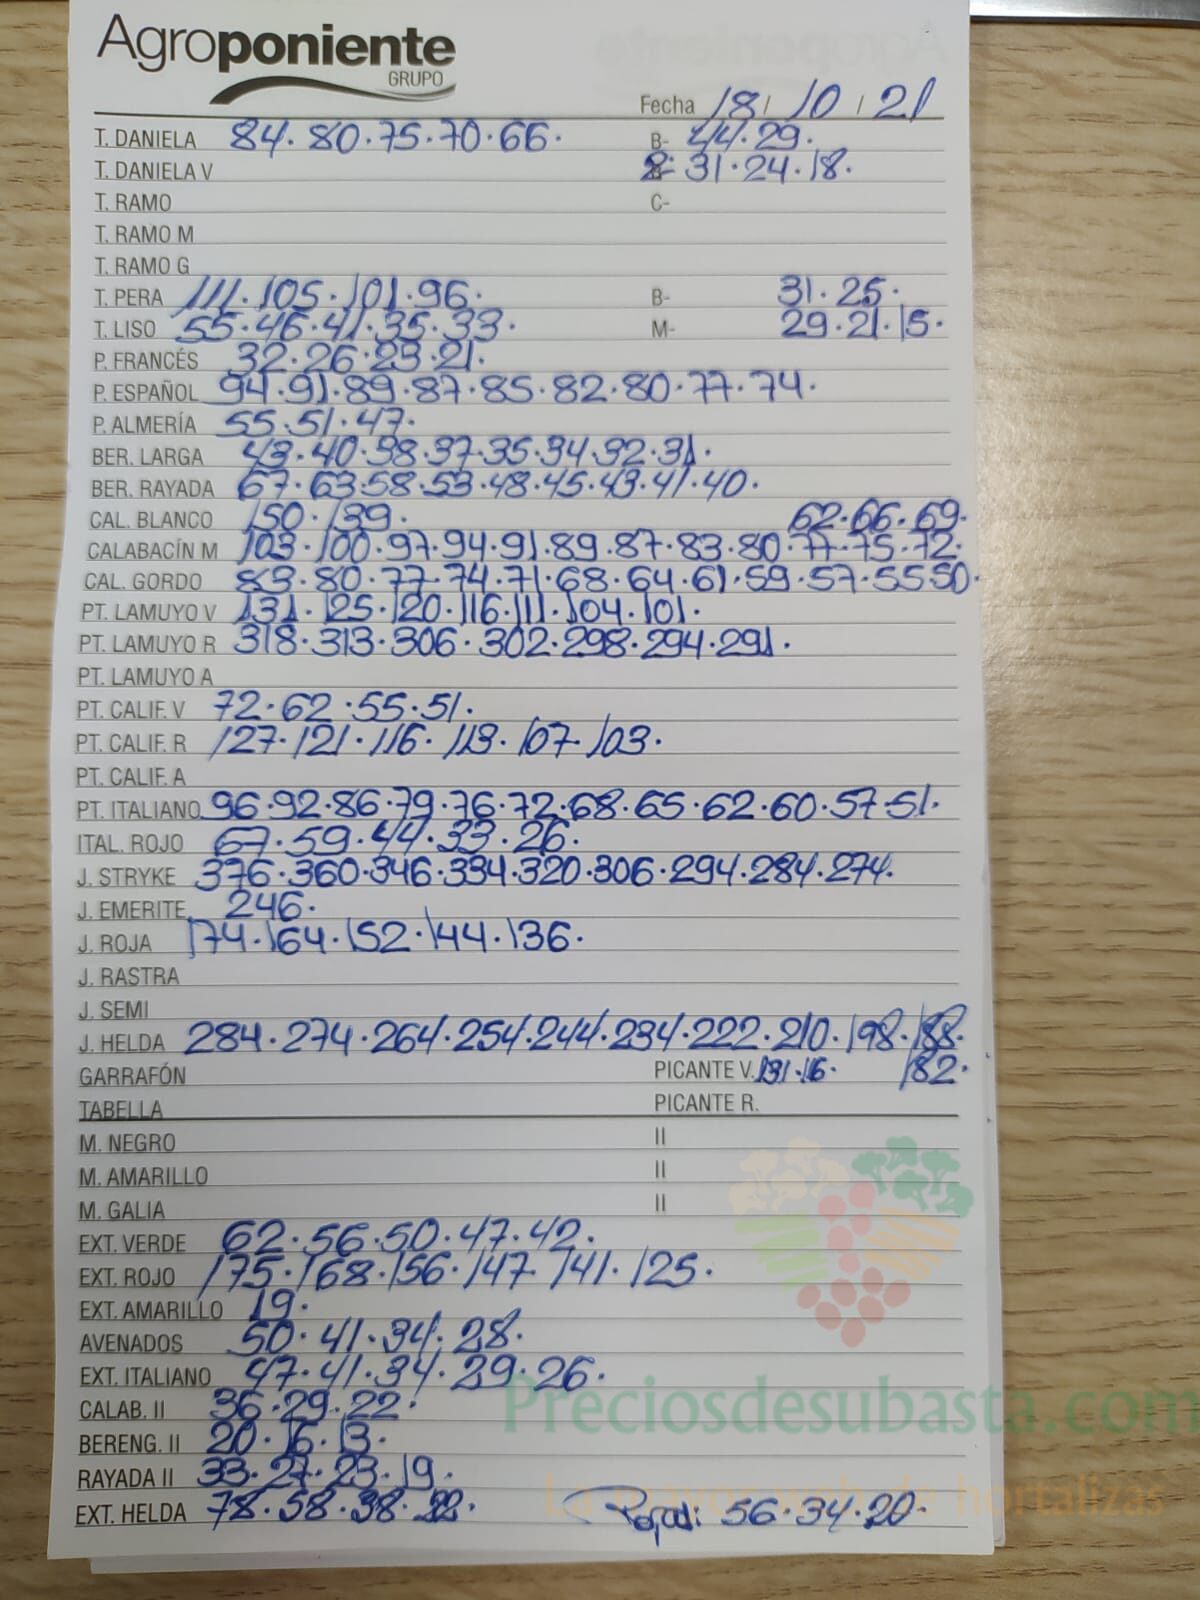 Agroponiente
GRUPO
Fecha 18 / 10 / 21
T. DANIELA 84. 80. 75. 70. 66. B- 44. 29.
T. DANIELA V 31. 24. 18.
T. RAMO C-
T. RAMO M
T. RAMO G
T. PERA 111. 105. 101. 96. B- 31. 25.
T. LISO 55. 46. 41. 35. 33. M- 29. 21. 15.
P. FRANCÉS 32. 26. 23. 21.
P. ESPAÑOL 94. 91. 89. 87. 85. 82. 80. 77. 74.
P. ALMERÍA 55. 51. 47.
BER. LARGA 43. 40. 38. 37. 35. 34. 32. 31.
BER. RAYADA 67. 63. 58. 53. 48. 45. 43. 41. 40.
CAL. BLANCO 150. 139. 62. 66. 69.
CALABACÍN M 103. 100. 97. 94. 91. 89. 87. 83. 80. 77. 75. 72.
CAL. GORDO 83. 80. 77. 74. 71. 68. 64. 61. 59. 57. 55 50.
PT. LAMUYO V 131. 125. 120. 116. 111. 104. 101.
PT. LAMUYO R 318. 313. 306. 302. 298. 294. 291.
PT. LAMUYO A
PT. CALIF. V 72. 62. 55. 51.
PT. CALIF. R 127. 121. 116. 113. 107. 103.
PT. CALIF. A
PT. ITALIANO 96. 92. 86. 79. 76. 72. 68. 65. 62. 60. 57. 51.
ITAL. ROJO 67. 59. 44. 33. 26.
J. STRYKE 376. 360. 346. 334. 320. 306. 294. 284. 274.
J. EMERITE 246.
J. ROJA 174. 164. 152. 144. 136.
J. RASTRA
J. SEMI
J. HELDA 284. 274. 264. 254. 244. 234. 222. 210. 198. 188.
GARRAFÓN PICANTE V. 131. 16. 182.
TABELLA PICANTE R.
M. NEGRO II
M. AMARILLO II
M. GALIA II
EXT. VERDE 62. 56. 50. 47. 42.
EXT. ROJO 175. 168. 156. 147. 141. 125.
EXT. AMARILLO 19.
AVENADOS 50. 41. 34. 28.
EXT. ITALIANO 47. 41. 34. 29. 26.
CALAB. II 36. 29. 22.
Preciosdesubasta.com
BERENG. II 20. 16. 13.
RAYADA II 33. 27. 23. 19.
EXT. HELDA 78. 58. 38. 22. 56. 34. 20.